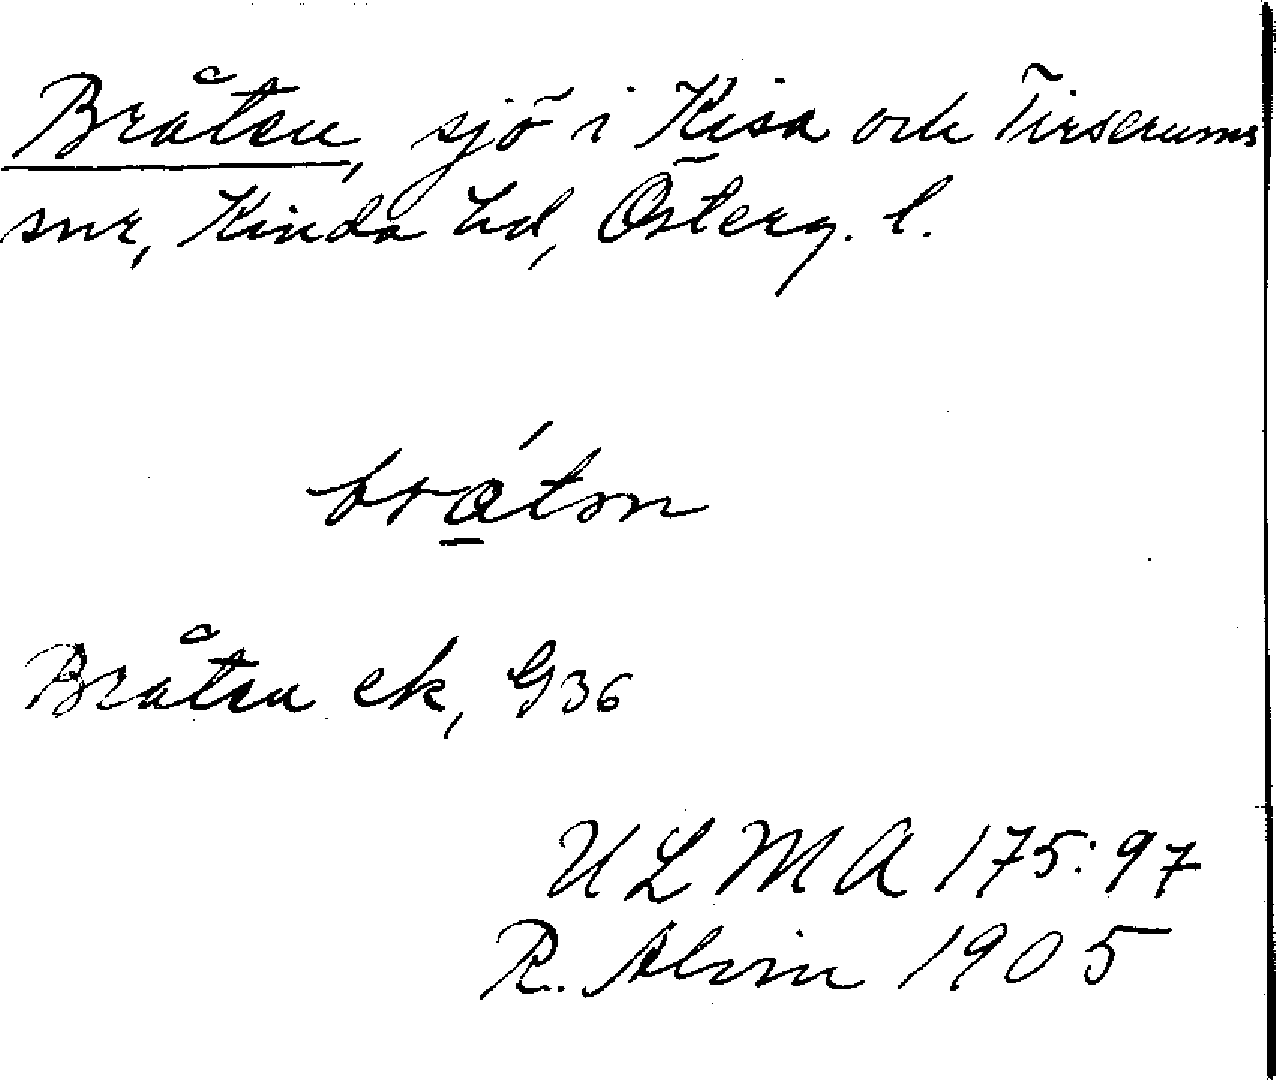 Bråten, sjö i Kisa och Tirserums
snr, Kinda hd, Österg. l.
brátn
Bråten ek, G36
ULMA 175:97
R. Alvin 1905